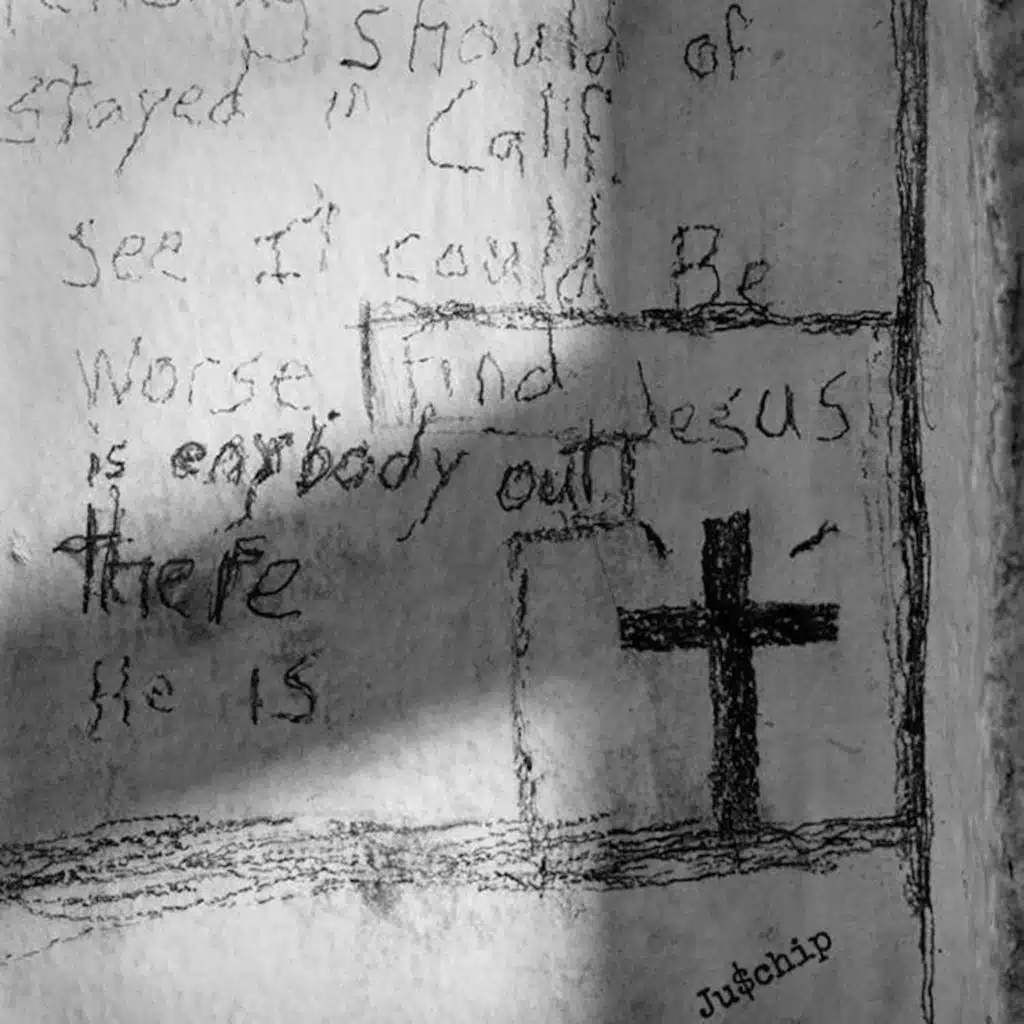 should of
stayed in Calif.
See It could Be
Worse. Find
Jesus
is enybody out
there
He IS
Ju$chip